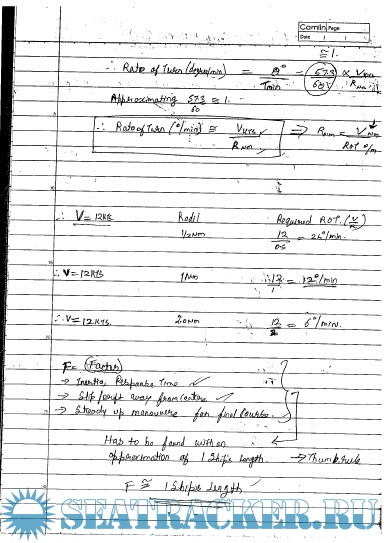 Camlin Page
Date / /
≅ 1.
∴ Rate of Turn (degree/min) = θ° / Tmin = 57.3 / 60 × VKts / RNm
Approximating 57.3 / 60 ≅ 1.
∴ Rate of Turn (°/min) ≅ VKts / RNm ⇒ RNm = V / ROT °/m
∴ V = 12Kts Radii Required ROT. (V/R)
1/2 Nm 12 / 0.5 = 24°/min.
∴ V = 12 KTS 1 Nm ∴ 12 / 1 = 12°/min
∴ V = 12 KTS. 2.0 Nm 12 / 2 = 6°/min.
F = (Factor)
→ Inertia, Response Time
→ Slip/drift away from centre
→ Steady up manoeuvre for final course.
Has to be found with an
approximation of 1 Ship's length. → Thumb rule
F ≅ 1 Ship's length
SEATRACKER.RU